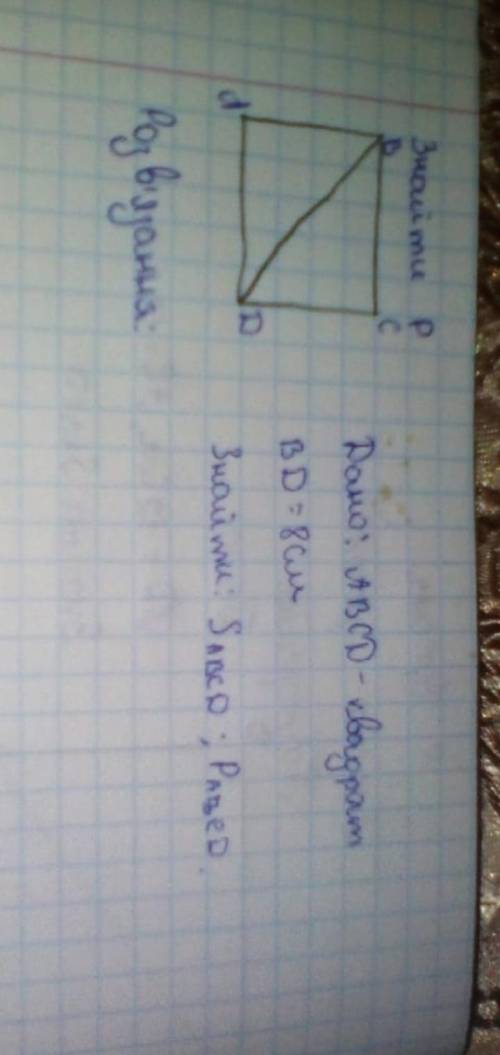 Знайти P
B
C
Дано: ABCD - квадрат
BD = 8см
d
D
Знайти: SABCD ; PABCD.
Розв'язання: